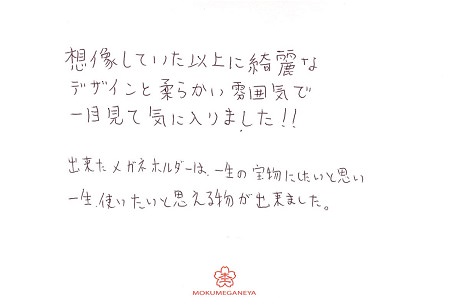 想像していた以上に綺麗な
デザインと柔らかい雰囲気で
一目見て気に入りました!!
出来たメガネホルダーは、一生の宝物にしたいと思い
一生、使いたいと思える物が出来ました。
MOKUMEGANEYA